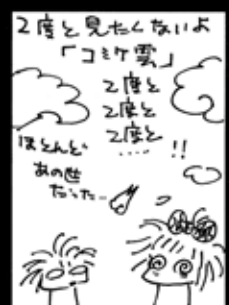 2度と見たくないよ
「コミケ雲」
2度と
2度と
2度と
‥‥ !!
ほとんど
あの世
だった‥